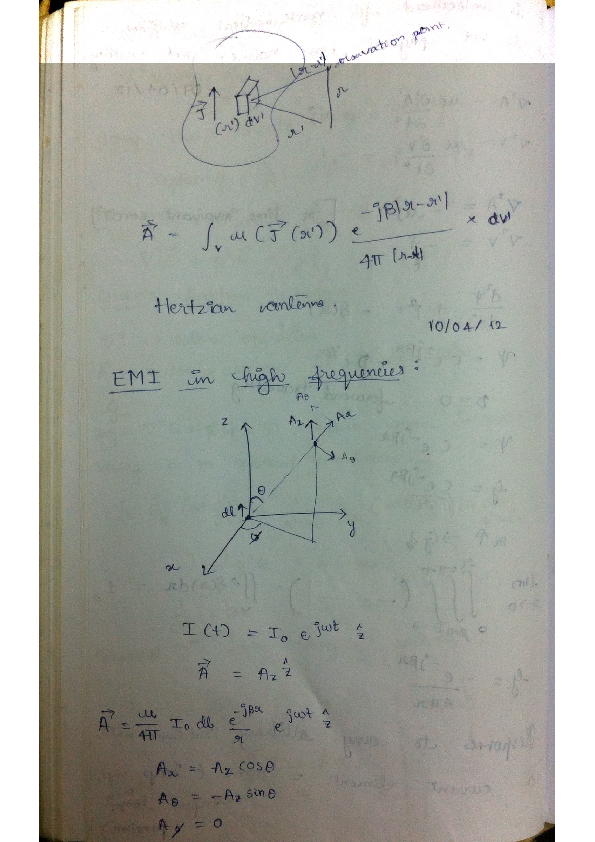 |r-r'|
observation point.
J⃗
(r') dv'
r
r'
A⃗ = ∫v μ (J⃗ (r')) e^{-jβ|r-r'|} / 4π |r-r'| × dv'
Hertzian antenna.
10/04/12
EMI in high frequencies:
z
Az
Ar
Aθ
θ
dl
ϕ
y
x
I(t) = I₀ e^{jωt} ẑ
A⃗ = Az ẑ
A⃗ = μ/4π I₀ dl e^{-jβr}/r e^{jωt} ẑ
Ar = Az cosθ
Aθ = -Az sinθ
Aϕ = 0